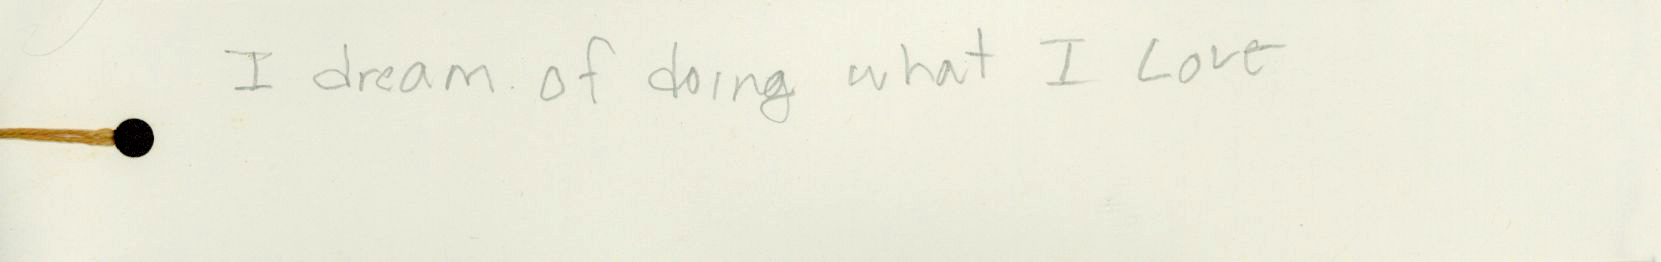 I dream of doing what I Love